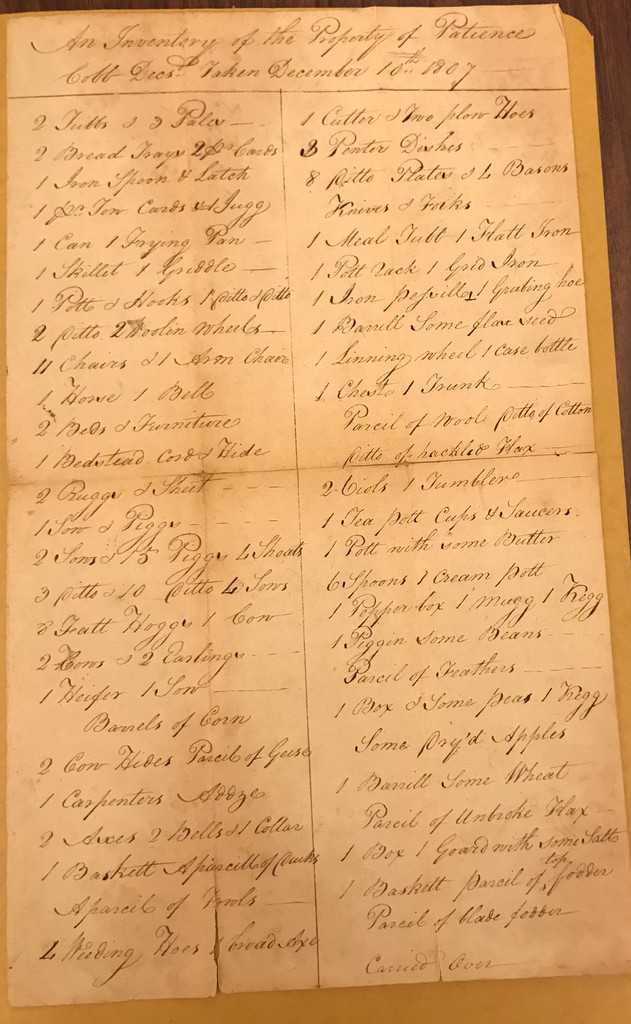 An Inventory of the Property of Patience
Cobb Decsd. Taken December 10th.. 1807
2 Tubbs & 3 Pales
2 Bread Trays 2 pr Cards
1 Iron Spoon & Latch
1 pr Tow Cards & 1 Jugg
1 Can 1 Frying Pan
1 Skillet 1 Griddle
1 Pott & Hooks 1 Ditto & Ditto
2 Ditto 2 Woolin Wheels
11 Chairs & 1 Arm Chair
1 Horse 1 Bell
2 Beds & Furniture
1 Bedstead Cord & Hide
2 Ruggs & Sheet
1 Sow & Piggs
2 Sows & 15 Piggs 4 Shoats
3 Ditto & 10 Ditto 4 Sows
8 Fatt Hoggs 1 Cow
2 Cows & 2 Earlings
1 Heifer 1 Sow
Barrels of Corn
2 Cow Hides Parcil of Geese
1 Carpenters Addze
2 Axes 2 Bells & 1 Collar
1 Baskett A parcill of Ducks
A parcil of Fowls
4 Weeding Hoes 1 broad Axe
1 Cutter & Two plow Hoes
3 Peuter Dishes
8 Ditto Plates & 4 Basons
Knives & Forks
1 Meal Tubb 1 Flatt Iron
1 Pott Rack 1 Grid Iron
1 Iron 1 Grubing hoe
1 Barrill Some flax seed
1 Linning wheel 1 case bottle
1 Chest 1 Trunk
Parcil of Wool Ditto of Cotton
Ditto of hackled Flax
2 Viols 1 Tumbler
1 Tea Pott Cups & Saucers
1 Pott with some Butter
6 Spoons 1 Cream Pott
1 Pepper box 1 Mugg 1 Kegg
1 Piggin some Beans
Parcil of Feathers
1 Box & Some Peas 1 Kegg
Some Dry'd Apples
1 Barrill Some Wheat
Parcil of Unbroke Flax
1 Box 1 Goard with some Salt
1 Baskett parcil of top fodder
Parcil of blade fodder
Carried Over